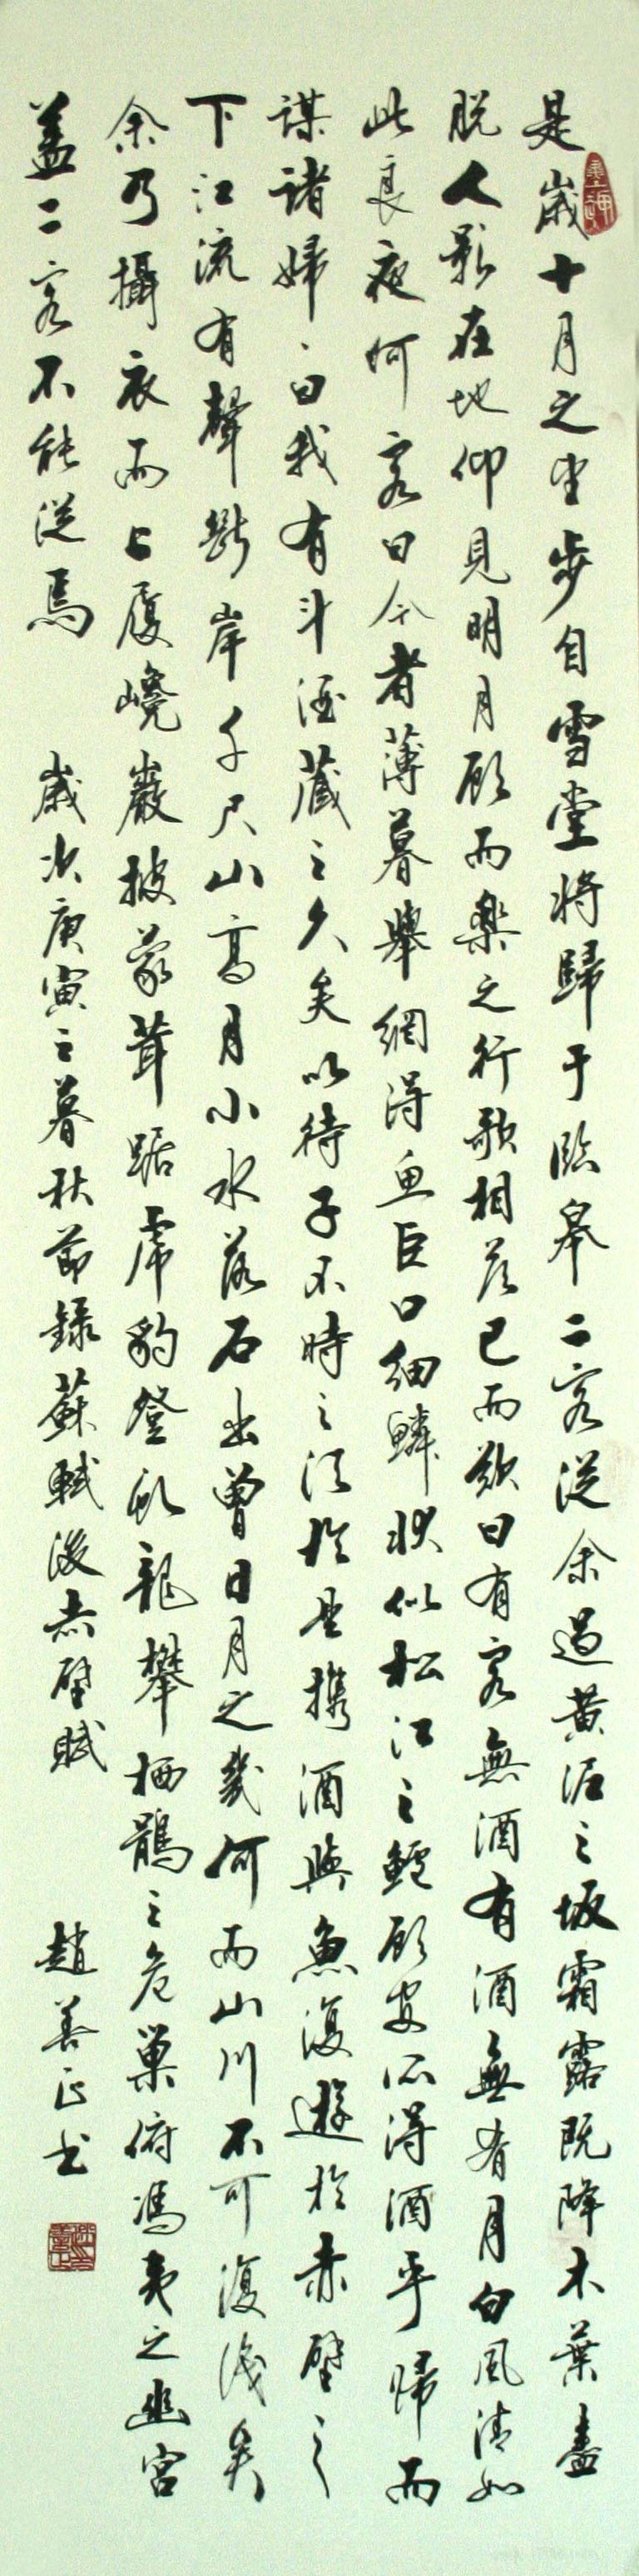 是歲十月之望步自雪堂將歸于臨皋二客從余過黃泥之坂霜露既降木葉盡
脱人影在地仰見明月顧而樂之行歌相答已而歎曰有客無酒有酒無肴月白風清如
此良夜何客曰今者薄暮舉網得魚巨口細鱗狀似松江之鱸顧安所得酒乎歸而
謀諸婦丶曰我有斗酒藏之久矣以待子不時之須於是攜酒與魚復遊於赤壁之
下江流有聲斷岸千尺山高月小水落石出曾日月之幾何而山川不可復識矣
余乃攝衣而上履巉巖披蒙茸踞虎豹登虬龍攀栖鶻之危巢俯馮夷之幽宮
蓋二客不能從焉 歲次庚寅之暮秋節錄蘇軾後赤壁賦 趙善正書